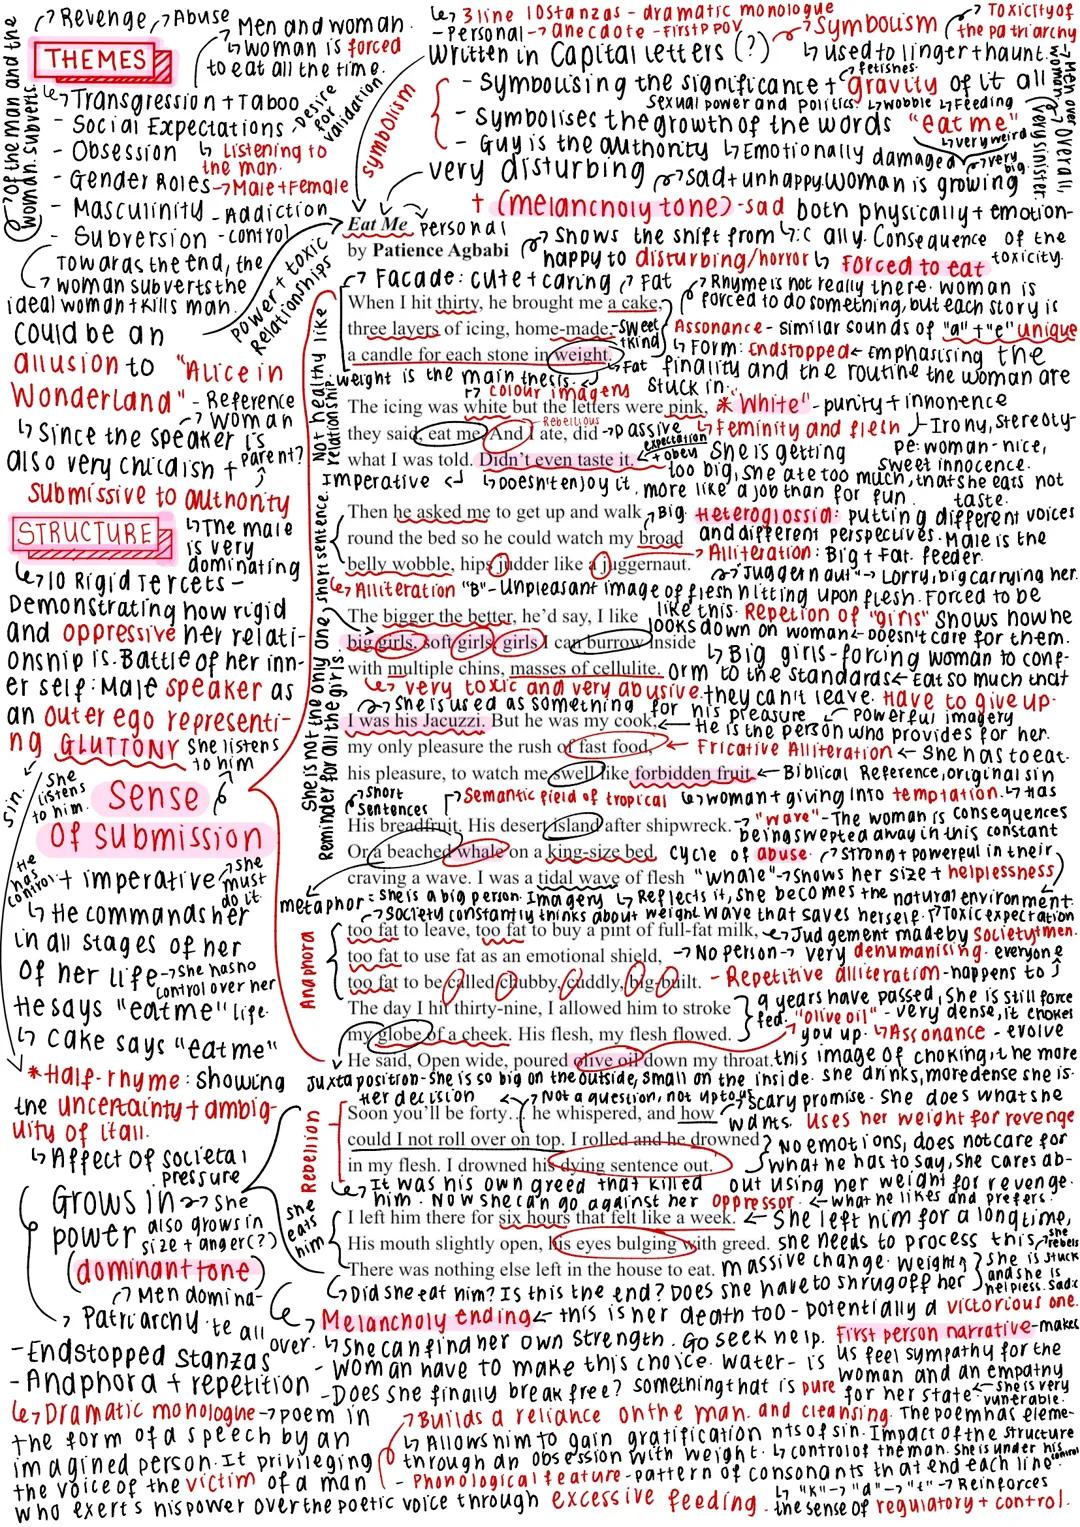 Revenge, Abuse
THEMES
Transgression + Taboo
- Social Expectations - Desire for validation
- Obsession ↳ Listening to the man.
- Gender Roles → Male + Female
- Masculinity - Addiction
- Subversion - control
↳ of the man and the woman. subverts.
Towards the end, the
woman subverts the
ideal woman + kills man.
Men and woman.
↳ woman is forced
to eat all the time.
symbolism
power + toxic relationships
could be an
allusion to "Alice in
Wonderland" - Reference
↳ Since the speaker is
also very childish +
submissive to authority
→ woman
parent?
STRUCTURE
↳ The male
is very
dominating
↳ 10 Rigid Tercets -
Demonstrating how rigid
and oppressive her relati-
onship is. Battle of her inn-
er self: Male speaker as
an outer ego representi-
ng GLUTTONY
sin.
She listens to him.
She listens
to him
Sense
of submission
He has control
+ imperative → She must do it.
↳ He commands her
in all stages of her
of her life → she has no control over her life.
He says "eat me"
↳ Cake says "eat me"
* Half-rhyme: showing
the uncertainty + ambig-
uity of it all.
↳ Affect of societal
pressure
Grows in → She
power also grows in size + anger(?)
(dominant tone)
→ Men domina-
Patriarchy te all over.
- Endstopped Stanzas
- Anaphora + repetition
↳ Dramatic monologue → poem in
the form of a speech by an
imagined person. It privileging
the voice of the victim of a man
who exerts his power over the poetic voice through excessive feeding.
↳ 3 line 10 stanzas - dramatic monologue
- Personal → anecdote - First P POV
written in Capital letters (?)
- Symbolising the significance + gravity of it all
fetishes.
Sexual power and politics. ↳ wobble ↳ Feeding
- Symbolises the growth of the words "eat me"
- Guy is the authority ↳ Emotionally damaged
→ very weird
→ very big.
very disturbing
→ Symbolism
↳ used to linger + haunt.
→ Toxicity of
the patriarchy
↳ Men over women
→ Overall, very sinister.
→ Sad + unhappy. Woman is growing
+ (melancholy tone) - sad both physically + emotion-
ally. Consequence of the
toxicity.
Eat Me
Personal
by Patience Agbabi
→ Shows the shift from
happy to disturbing/horror ↳ Forced to eat
→ Facade: cute + caring → Fat
When I hit thirty, he brought me a cake,
three layers of icing, home-made,
a candle for each stone in weight.
- sweet + kind
↳ Fat
→ Rhyme is not really there. woman is
forced to do something, but each story is
unique
Assonance - similar sounds of "a" + "e"
↳ Form: Endstopped ← Emphasising the
finality and the routine the woman are
stuck in.
weight is the main thesis.
→ colour imagery
Not healthy like relationship
The icing was white but the letters were pink,
they said, eat me. And I ate, did
what I was told. Didn't even taste it.
Rebellious
→ passive
expectation
+ obey
* "White" - purity + innocence
↳ Feminity and flesh
→ Irony, stereoty-
pe: woman - nice,
sweet innocence.
She is getting
too big, she ate too much, that she eats not
more like a job than for fun. taste.
Imperative ↵ ↳ Doesn't enjoy it.
Then he asked me to get up and walk
round the bed so he could watch my broad
belly wobble, hips judder like a juggernaut.
short sentence.
→ Big
Heteroglossia: putting different voices
and different perspectives. Male is the
feeder.
→ Alliteration: Big + Fat.
→ "Juggernaut" → Lorry, big carrying her.
↳ Alliteration "B" - Unpleasant image of flesh hitting upon flesh. Forced to be
like this.
The bigger the better, he'd say, I like
big girls, soft girls, girls I can burrow inside
with multiple chins, masses of cellulite.
Repetion of "girls" Shows how he
looks down on woman ← Doesn't care for them.
↳ Big girls - forcing woman to conf-
orm to the standards ← Eat so much that
they can't leave. Have to give up.
↳ very toxic and very abusive.
→ She is used as something for his pleasure
She is not the only one, Reminder for all the girls.
I was his Jacuzzi. But he was my cook,
my only pleasure the rush of fast food,
his pleasure, to watch me swell like forbidden fruit.
Powerful imagery
← He is the person who provides for her.
← Fricative Alliteration ← She has to eat.
← Biblical Reference, original sin
↳ woman + giving into temptation. ↳ Has
consequences
→ Short Sentences
→ Semantic field of tropical
His breadfruit. His desert island after shipwreck.
Or a beached whale on a king-size bed
craving a wave. I was a tidal wave of flesh
→ "wave" - The woman is
being swepted away in this constant
cycle of abuse. → Strong + powerful in their
natural environment.
"whale" → Shows her size + helplessness
metaphor: She is a big person. Imagery ↳ Reflects it, she becomes the
→ Society constantly thinks about weight
Wave that saves herself. → Toxic expectation
Anaphora
too fat to leave, too fat to buy a pint of full-fat milk,
too fat to use fat as an emotional shield,
too fat to be called chubby, cuddly, big-built.
↳ Judgement made by society + men.
→ No person → very denumanising. everyone
- Repetitive alliteration - happens to
The day I hit thirty-nine, I allowed him to stroke
my globe of a cheek. His flesh, my flesh flowed.
He said, Open wide, poured olive oil down my throat.
9 years have passed, She is still force
fed. "olive oil" - very dense, it chokes
you up. ↳ Assonance - evolve
this image of choking, the more
she drinks, more dense she is.
Juxtaposition - She is so big on the outside, small on the inside.
Her decision
→ Not a question, not up to us
Rebellion
Soon you'll be forty... he whispered, and how
could I not roll over on top. I rolled and he drowned
in my flesh. I drowned his dying sentence out.
→ Scary promise. She does what she
wants. Uses her weight for revenge
No emotions, does not care for
what he has to say, she cares ab-
out using her weight for revenge.
↳ It was his own greed that killed
him. Now she can go against her oppressor. ← what he likes and prefers.
she eats him
I left him there for six hours that felt like a week.
His mouth slightly open, his eyes bulging with greed.
There was nothing else left in the house to eat.
← She left him for a long time,
she needs to process this, she rebels
massive change. Weight → She is stuck
and she is helpless. Sad :(
↳ Did she eat him? Is this the end? Does she have to shrug off her
Melancholy ending ← this is her death too - potentially a victorious one.
↳ She can find her own strength. Go seek help.
- Woman have to make this choice. Water - is
something that is pure
and cleansing.
- Does she finally break free?
First person narrative - makes
us feel sympathy for the
woman and an empathy
for her state ← She is very vunerable.
→ Builds a reliance on the man.
↳ Allows him to gain gratification
through an obsession with weight.
The poem has eleme-
nts of sin. Impact of the structure
↳ control of the man. She is under his control
- Phonological feature - pattern of consonants that end each line
↳ "K" → "d" → "t" → Reinforces
the sense of regulatory + control.